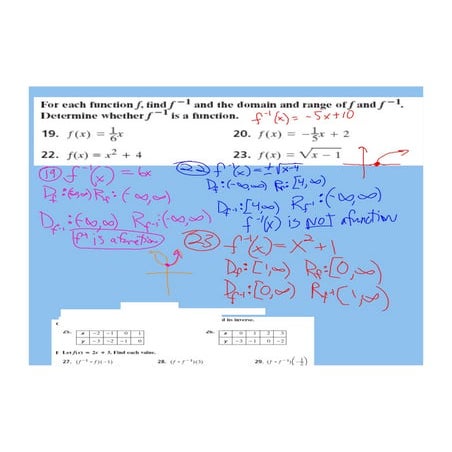 For each function f, find f⁻¹ and the domain and range of f and f⁻¹.
Determine whether f⁻¹ is a function. f⁻¹(x) = -5x+10
19. f(x) = 1/6x 20. f(x) = -1/5x + 2
22. f(x) = x² + 4 23. f(x) = √x - 1
(19) f⁻¹(x) = 6x
D_f: (-∞,∞) R_f: (-∞,∞)
D_f⁻¹: (-∞,∞) R_f⁻¹: (-∞,∞)
f⁻¹ is a function
(22) f⁻¹(x) = ±√x-4
D_f: (-∞,∞) R_f: [4,∞)
D_f⁻¹: [4,∞) R_f⁻¹: (-∞,∞)
f⁻¹(x) is NOT a function
(23) f⁻¹(x) = x² + 1
D_f: [1,∞) R_f: [0,∞)
D_f⁻¹: [0,∞) R_f⁻¹ (1,∞)
d its inverse.
x -2 -1 0 1
y -3 -2 -1 0
x 0 1 2 3
y -3 -1 0 -2
Let f(x) = 2x + 5. Find each value.
27. (f⁻¹ ∘ f)(-1) 28. (f ∘ f⁻¹)(3) 29. (f ∘ f⁻¹)(-1/2)